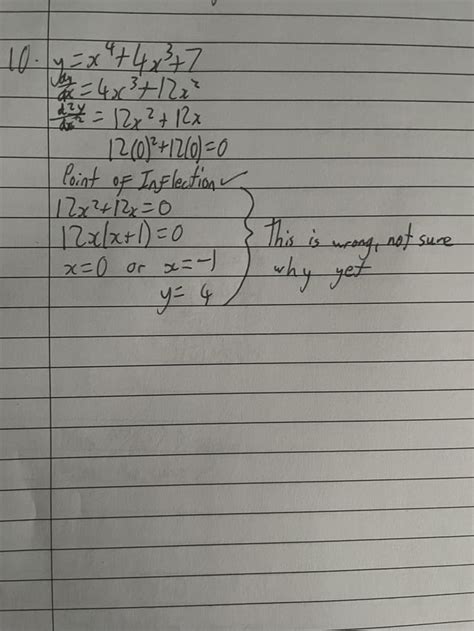 10. y=x⁴+4x³+7
dy/dx=4x³+12x²
d²y/dx²=12x²+12x
12(0)²+12(0)=0
Point of Inflection✓
12x²+12x=0
12x(x+1)=0
x=0 or x=-1
y=4
This is wrong, not sure
why yet